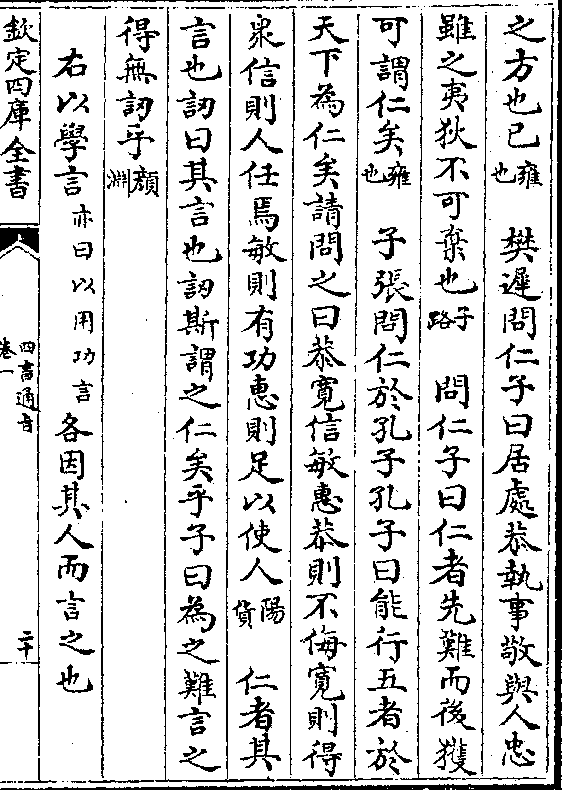 之方也已雍也　樊遲問仁子曰居處恭執事敬與人忠
雖之夷狄不可棄也子路　問仁子曰仁者先難而後獲
可謂仁矣雍也　子張問仁於孔子孔子曰能行五者於
天下為仁矣請問之曰恭寛信敏惠恭則不侮寛則得
衆信則人任焉敏則有功惠則足以使人陽貨　仁者其
言也訒曰其言也訒斯謂之仁矣乎子曰為之難言之
得無訒乎顔淵
右以學言亦曰以用功言各因其人而言之也
欽定四庫全書
四書通旨
卷一
二十